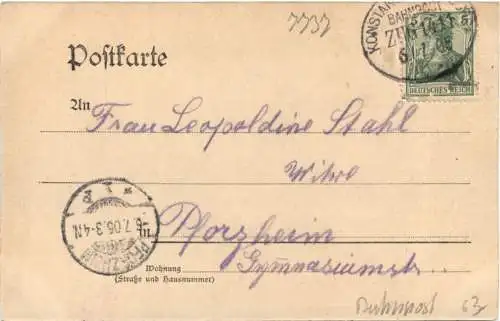 7737
KONSTAN
BAHNPOST
ZUG
Postkarte
DEUTSCHES REICH
An
Frau Leopoldine Stahl
Witwe
in Pforzheim
6.7.05.3-4N.
PFORZHEIM
Wohnung
(Straße und Hausnummer)
Gymnasiumstr.
Bahnpost 63